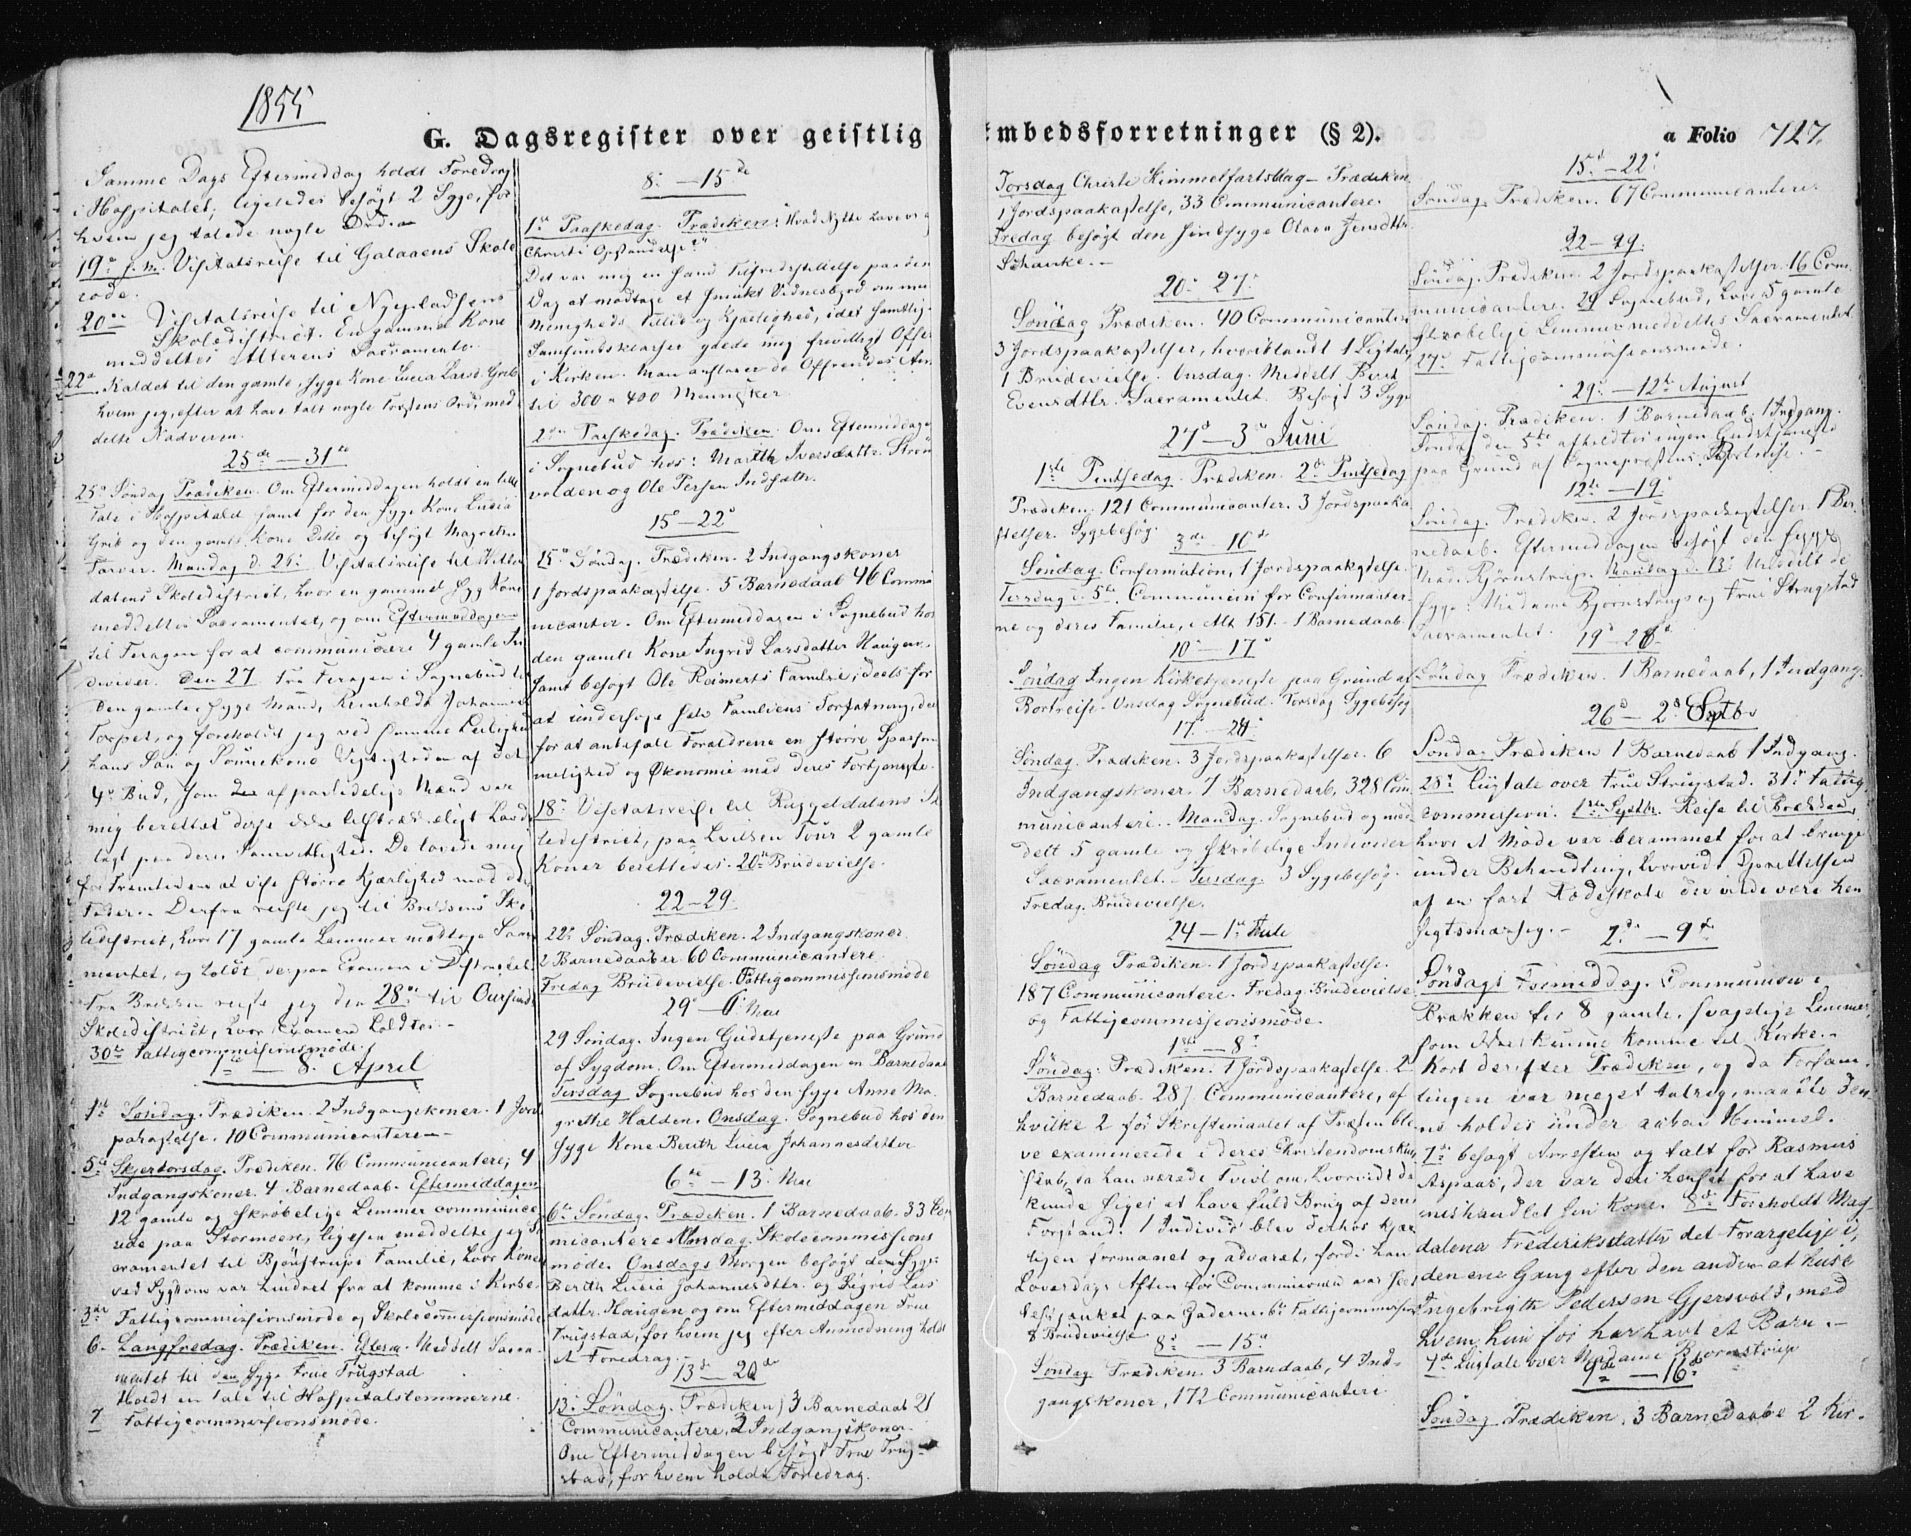 1855
G. Dagsregister over geistlig
Samme Dags Eftermiddag holdt Foredrag
i Hospitalet; ligeledes besøgt 2 Syge, for
hvem jeg talede nogle Ord.
19de f. M. Visitatsreise til Galaaens Skole
rode.
20de Visitatsreise til Nyepladsens
Skoledistrict. En gammel Kone
meddeltes Alterens Sacramente.
22de Kaldet til den gamle, syge Kone Lucia Larsd. Grib
hvem jeg, efter at have talt nogle Trøstens Ord, med
delte Nadveren.
25de – 31te
25de Søndag Prædiken. Om Eftermiddagen holdt en lille
Tale i Hospitalet samt for den syge Kone Lucia
Grib og den gamle Kone og besøgt Magrethe
Farver. Mandag d. 26: Visitatsreise til Hitter
dalens Skoledistrict, hvor en gammel syg Kone
meddeltes Sacramentet, og om Eftermiddagen
til Feragen for at communicere 4 gamle In
divider. Den 27 fra Feragen i Sognebud til
den gamle, syge Mand, Reinholdt Johannes
Torpet, og foreholdt jeg ved samme Leilighed
hans Søn og Sønnekone Vigtigheden af det
4de Bud, som af paalidelige Mænd var
mig berettet disse ikke tilstrækkeligt havde
lagt paa deres Samvittighed. De lovede mig
for Fremtiden at vise større Kjærlighed mod den
Fader. Derfra reiste jeg til Brekkens Sko
ledistrict, hvor 17 gamle Lemmer modtoge Sacra
mentet, og holdt derpaa Examen i Districtet.
Fra Brekken reiste jeg den 28de til Oursunds
Skoledistrict, hvor Examen holdtes.
30te Fattigcommissionsmøde.
1ste – 8: April
1ste Søndag. Prædiken. 2 Indgangskoner. 1 Jords
paakastelse. 10 Communicantere.
5te Skjertorsdag. Prædiken. 76 Communicantere; 4
Indgangskoner. 4 Barnedaab. Eftermiddagen
12 gamle og skrøbelige Lemmer communice
rede paa Stormoen; ligesaa meddelte jeg Sa
cramentet til Bjørnstrups Familie, hvor Konen
ved Sygdom var hindret fra at komme i Kirke.
3die Fattigcommissionsmøde og Skolecommissionsmøde
6. Langfredag. Prædiken. Efterm. Meddelt Sacra
mentet til den syge Frue Trugstad
Holdt en Tale til Hospitalslemmerne.
7 Fattigcommissionsmøde.
8: – 15de
1ste Paaskedag. Prædiken: "Hvad Nytte have vi af
Christi Opstandelse?"
Det var mig en sand Tilfredsstillelse paa den
Dag at modtage et smukt Vidnesbyrd om min
Menigheds Tillid og Kjærlighed, idet samtlige
Samfundsklasser ydede mig frivilligt Offer
i Kirken. Man anslaaer de Offrendes An
til 300 a 400 Mennesker.
2den Paaskedag. Prædiken. Om Eftermiddagen
i Sognebud hos: Marith Iversdatter Strøm
volden og Ole Persen Indsæth.
15de – 22de
15de Søndag. Prædiken. 2 Indgangskoner
1 Jordspaakastelse. 5 Barnedaab 46 Commu
nicanter. Om Eftermiddagen i Sognebud hos
den gamle Kone Ingrid Larsdatter Haugen,
samt besøgt Ole Reinerts Familie, deels for
at undersøge selv Familiens Forfatning, deels
for at anbefale Forældrene en større Sparsom
melighed og Økonomie med deres Fortjeneste.
18de Visitatsreise til Ruggeldalens Sko
ledistrict, paa hvilken Tour 2 gamle
Koner berettedes. 20de Brudevielse.
22 – 29.
22de Søndag. Prædiken. 2 Indgangskoner.
2 Barnedaaber 60 Communicantere.
Fredag Brudevielse. Fattigcommissionsmøde
29de – 6te Mai
29 Søndag. Ingen Gudstjeneste paa Grund
af Sygdom. Om Eftermiddagen en Barnedaab
Tirsdag Sognebud hos den syge Anne Ma
grethe Halden. Onsdag. Sognebud hos den
syge Kone Berith Lucia Johannesdatter
6te – 13. Mai
6te Søndag. Prædiken. 1 Barnedaab. 33 Com
municantere Mandag. Skolecommissions
møde. Onsdags Morgen besøgt den syge
Berth Lucia Johannesdttr. og Sigrid Lars
dattr. Haugen og om Eftermiddagen Frue
Trugstad, for hvem jeg efter Anmodning holdt
et Foredrag.
13de – 20de
13: Søndag. Prædiken; 3 Barnedaab 21
Communicantere. 2 Indgangskoner.
Om Eftermiddagen besøgt Frue Trug-
stad, for hvem holdt Foredrag.
Embedsforretninger (§ 2).
a Folio 727.
Torsdag Christi Himmelfartsdag – Prædiken
1 Jordspaakastelse, 33 Communicantere.
Fredag besøgt den sindsyge Olava Jensdttr.
Schanke.
20: 27:
Søndag Prædiken. 40 Communicanter.
3 Jordspaakastelser, hvoriblandt 1 Ligtale
1 Brudevielse. Onsdag. Meddelt Berit
Evensdttr. Sacramentet. Besøgt 3 Syge
27de – 3die Juni
1ste Pintsedag. Prædiken. 2den Pintsedag
Prædiken; 121 Communicanter. 3 Jordspaaka
stelser. Sygebesøg.
3de – 10de
Søndag. Confirmation, 1 Jordspaakastelse.
Tirsdag d. 5te. Communion for Confirmanter
ne og deres Familie, i Alt 151. 1 Barnedaab.
10de – 17de
Søndag Ingen Kirketjeneste paa Grund af
Bortreise. Onsdag Sognebud. Torsdag Sygebesøg
17. – 24
Søndag. Prædiken. 3 Jordspaakastelser. 6
Indgangskoner. 7 Barnedaab. 328 Com
municantere. Mandag. Sognebud og med
delt 5 gamle og skrøbelige Individer
Sacramentet. Tirsdag. 3 Sygebesøg.
Fredag. Brudevielse.
24 – 1ste Juli
Søndag Prædiken. 1 Jordspaakastelse.
187 Communicantere. Fredag. Brudevielse
og Fattigcommissionsmøde.
1ste – 8:
Søndag: Prædiken: 1 Jordspaakastelse. 2
Barnedaab. 287 Communicantere, af
hvilke 2 før Skriftemaalet af Præsten ble
ve examinerede i deres Christendomskund
skab, da han nærede Tvivl om, hvorvidt de
kunde siges at have fuld Brug af deres
Forstand. 1 Individ blev derhos kjær
ligen formanet og advaret, fordi han
Løverdags Aften før Communionen var seet
beskjænket paa Gaderne. Fattigcommission
8 Brudevielse
8: – 15de
Søndag Prædiken. 3 Barnedaab, 4 Ind-
gangskoner, 172 Communicantere.
15de – 22:
Søndag Prædiken. 67 Communicantere.
22 – 29.
Søndag. Prædiken. 2 Jordspaakastelser. 16 Com
municantere. Sognebud, hvor 5 gamle
skrøbelige Lemmer meddeltes Sacramentet.
27: Fattigcommissionsmøde.
29: – 12te August
Søndag. Prædiken. 1 Barnedaab. 1 Indgang.
Søndag den 5te afholdtes ingen Gudstjeneste
paa Grund af Sognepræstens Bortreise.
12te – 19de
Søndag. Prædiken. 2 Jordspaakastelser. 1 Bar
nedaab. Eftermiddagen besøgt den syge
Mad. Bjørnstrup. Mandag d. 13: Meddelt de
syge: Madame Bjørnstrup og Frue Strugstad
Sacramentet.
19de – 26de
Søndag Prædiken. 1 Barnedaab, 1 Indgang.
26de – 2den Septb.
Søndag Prædiken 1 Barnedaab 1 Indgang.
28de Liigtale over Frue Strugstad. 31te Fattig
commission. 1ste Septbr. Reise til Brekken,
hvor et Møde var berammet for at bringe
under Behandling, hvorvidt Oprettelsen
af en fast Rodeskole der vilde være hen
sigtsmæssig.
2de – 9de
Søndags Formiddag. Communion i
Brækken for 8 gamle, svagelige Lemmer,
som ikke kunne komme til Kirke.
Kort derefter Prædiken, og da Forsam
lingen var meget talrig, maatte den
ne holdes under aaben Himmel.
7de besøgt Arresten og talt for Rasmus
Aspaas, der var deri hensat for at have
mishandlet sin Kone. 8de Foreholdt Mag
dalena Frederiksdatter det Forargelige i,
den ene Gang efter den anden at huse
Ingebrigth Pedersen Gjersvold, med
hvem hun før har havt et Barn.
4de Liigtale over Madame Bjørnstrup
9de – 16de
Søndag Prædiken. 3 Barnedaab 2 Kir-